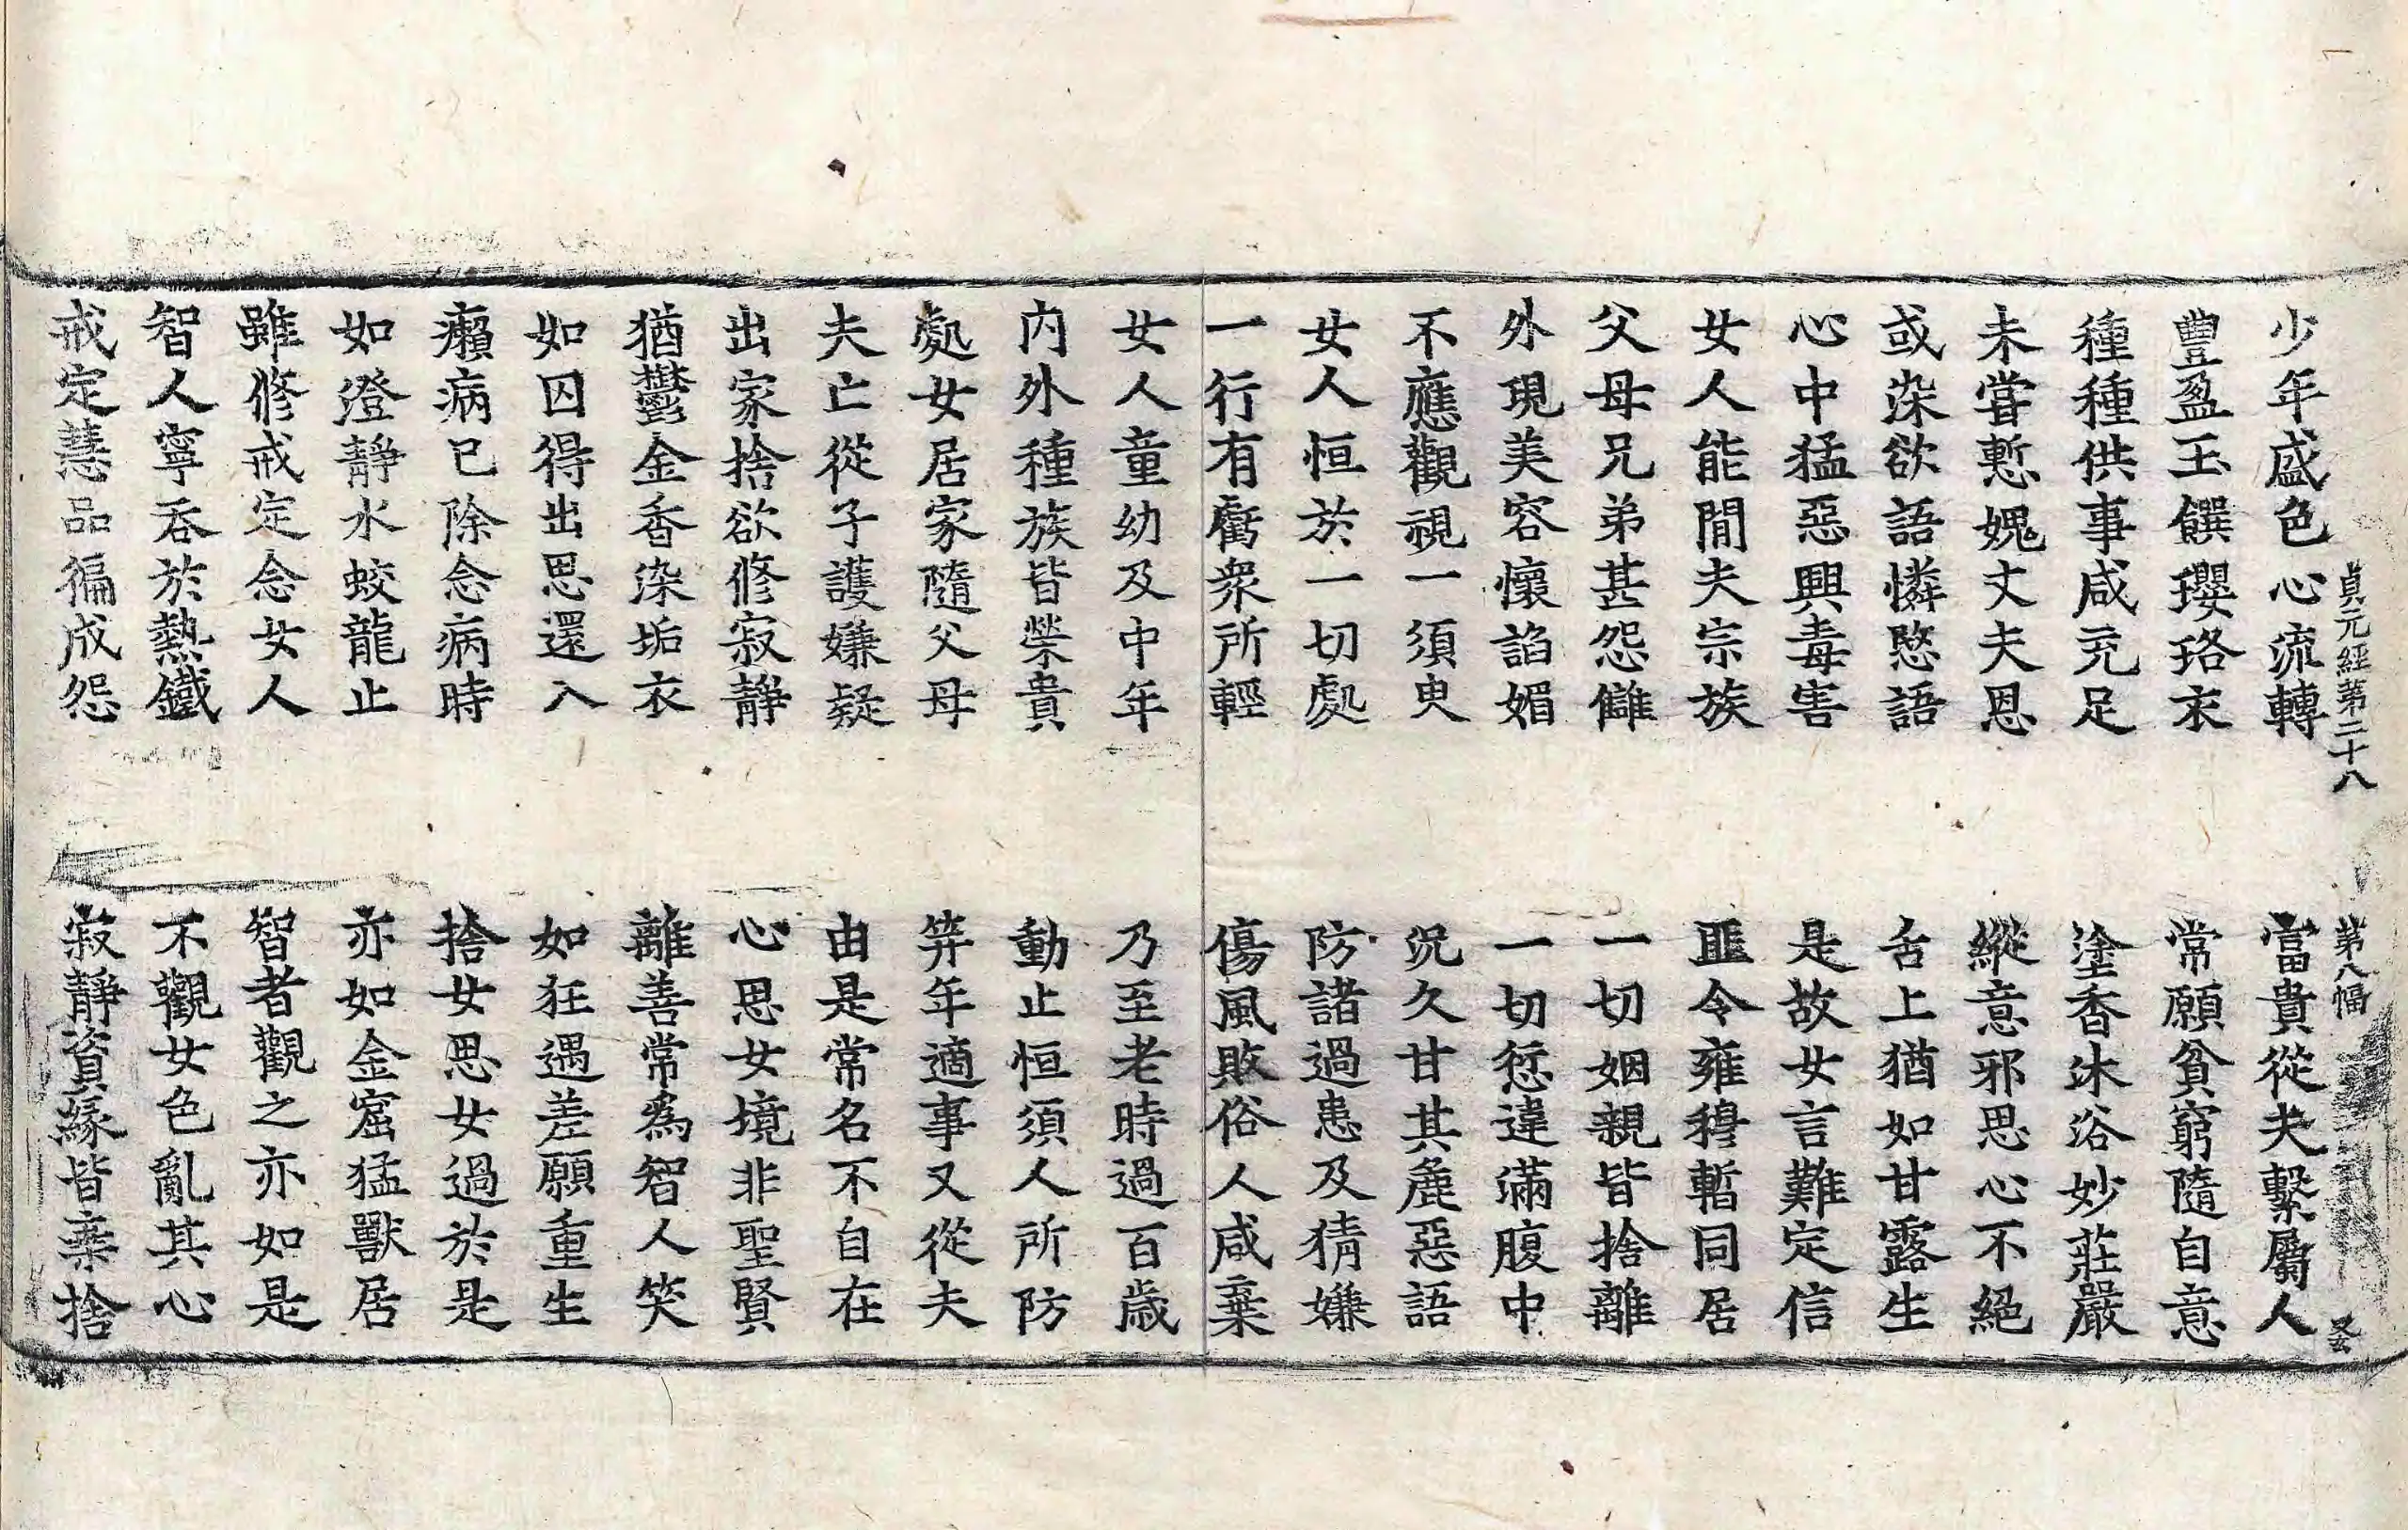 貞元經第二十八 第八幅
少年盛色心流轉 當貴從夫繫屬人
豐盈玉饌瓔珞衣 常願貧窮隨自意
種種供事咸充足 塗香沐浴妙莊嚴
未嘗慙媿丈夫恩 縱意邪思心不絕
或染欲語憐愍語 舌上猶如甘露生
心中猛惡興毒害 是故女言難定信
女人能閒夫宗族 匪令雍穆暫同居
父母兄弟甚怨讎 一切姻親皆捨離
外現美容懷諂媚 一切愆違滿腹中
不應觀視一須臾 況久甘其麁惡語
女人恒於一切處 防諸過患及猜嫌
一行有虧衆所輕 傷風敗俗人咸棄
女人童幼及中年 乃至老時過百歲
內外種族皆榮貴 動止恒須人所防
處女居家隨父母 笄年適事又從夫
夫亡從子護嫌疑 由是常名不自在
出家捨欲修寂靜 心思女境非聖賢
猶鬱金香染垢衣 離善常爲智人笑
如囚得出思還入 如狂遇差願重生
癩病已除念病時 捨女思女過於是
如澄靜水蛟龍止 亦如金窟猛獸居
雖修戒定念女人 智者觀之亦如是
智人寧吞於熱鐵 不觀女色亂其心
戒定慧品徧成怨 寂靜資緣皆棄捨